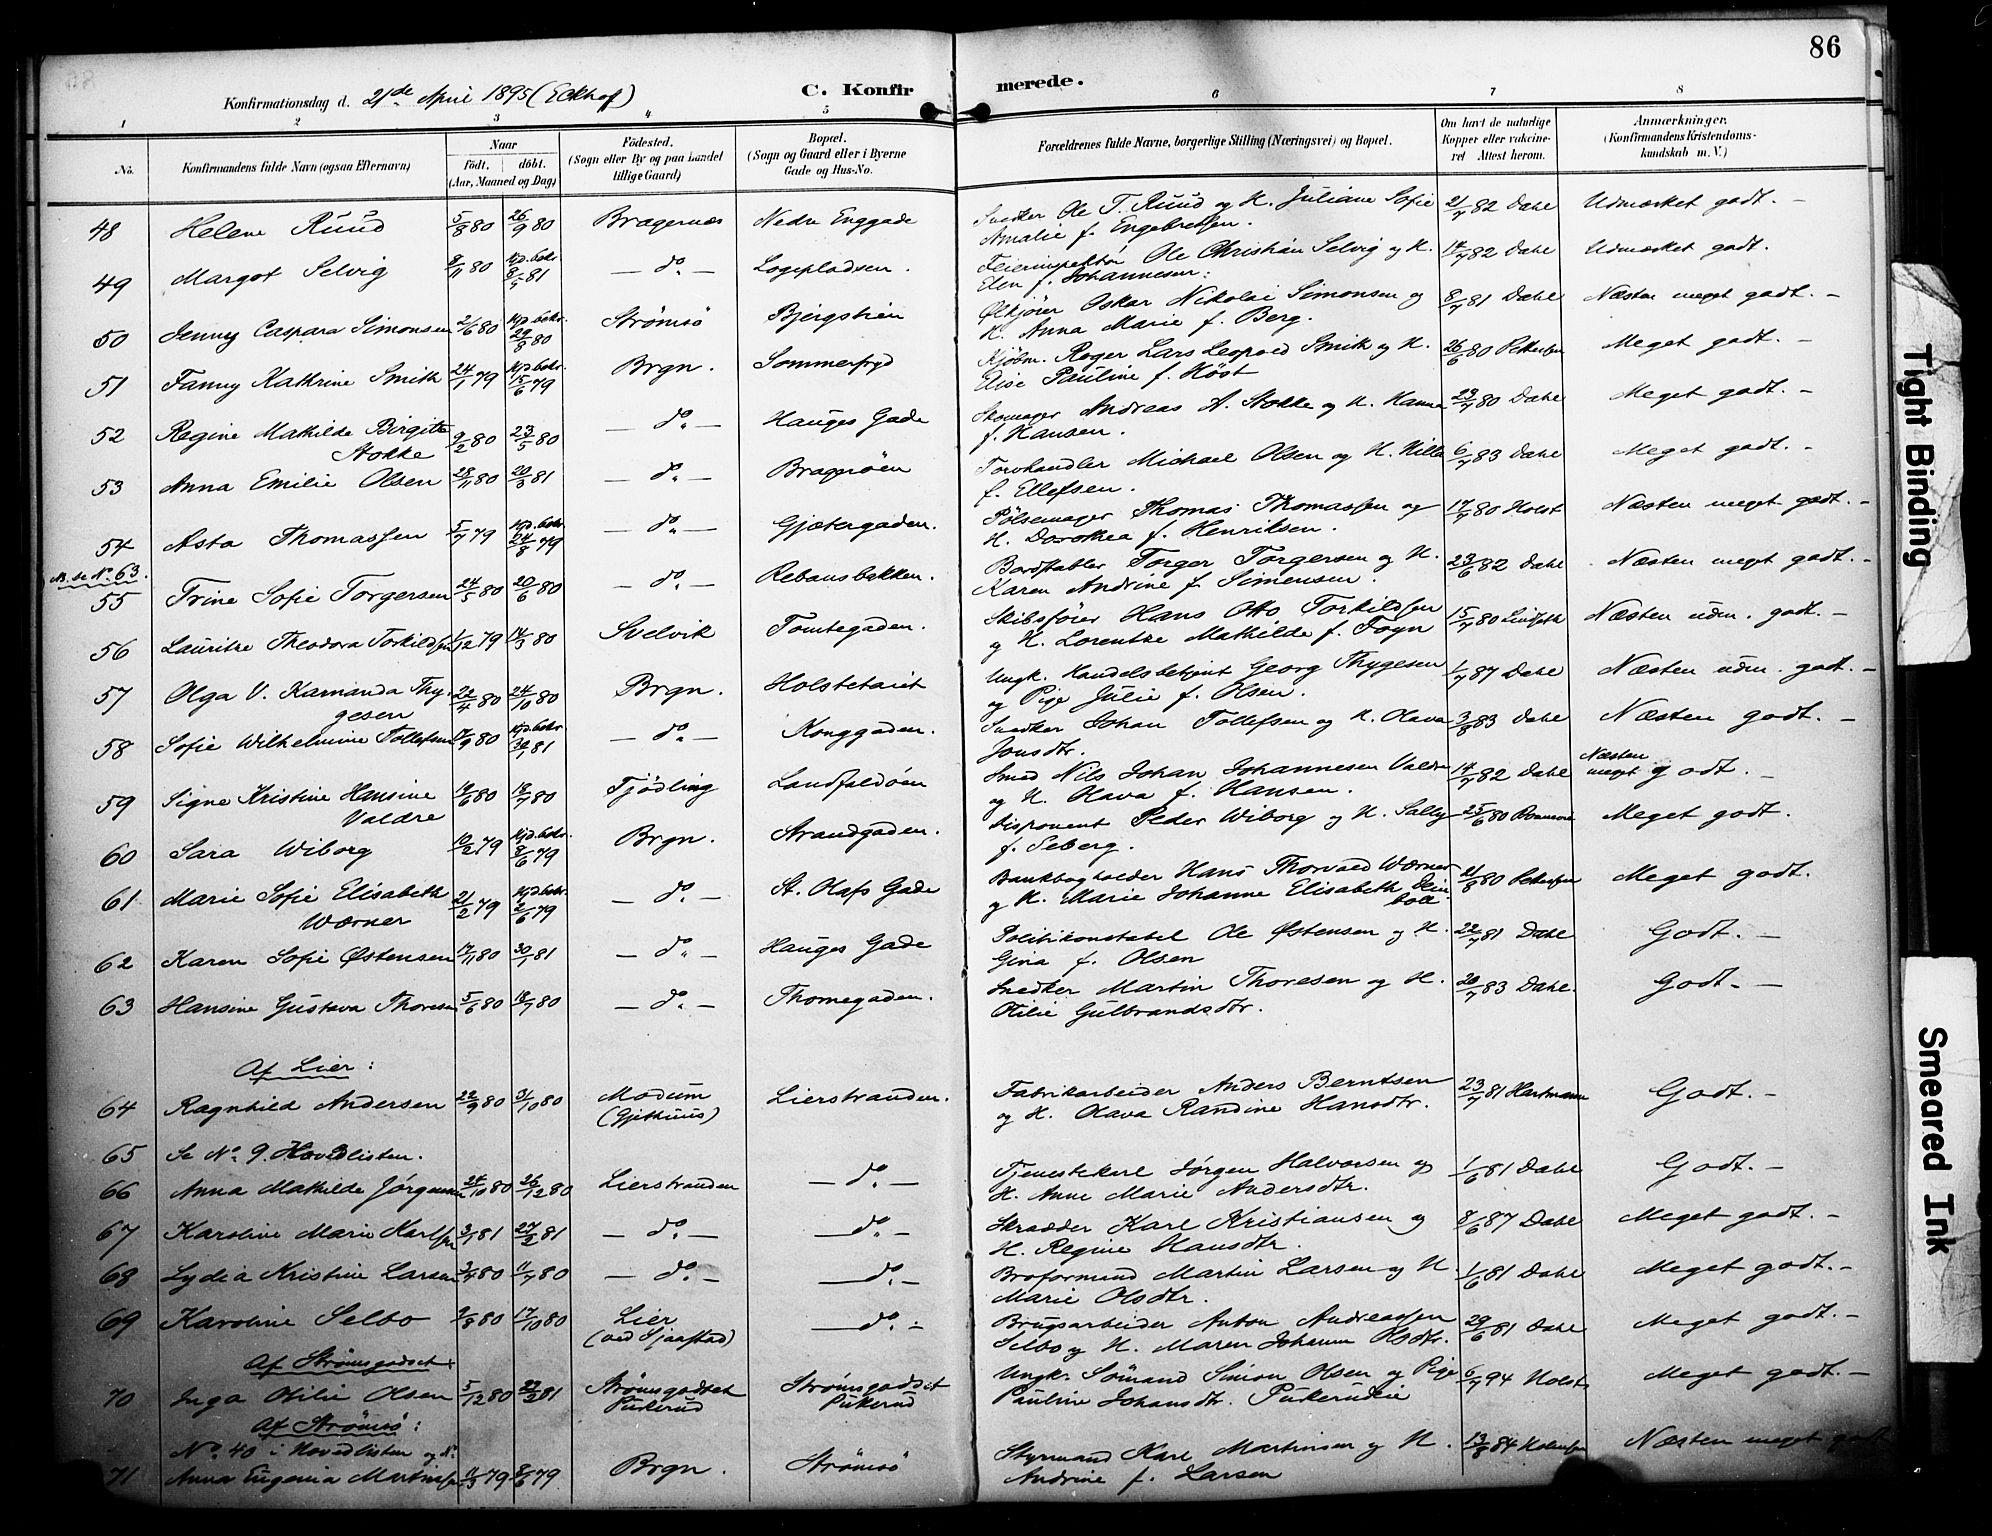 86
Konfirmationsdag d. 21de April 1895 (Eckhof) C. Konfirmerede.
1 2 3 4 5 6 7 8
No. Konfirmandens fulde Navn (ogsaa Efternavn) Naar født. døbt. (Aar, Maaned og Dag) Fødested. (Sogn eller By og paa Landet tillige Gaard) Bopæl. (Sogn og Gaard eller i Byerne Gade og Hus-No. Forældrenes fulde Navne, borgerlige Stilling (Næringsvei) og Bopæl. Om havt de naturlige Kopper eller vakcineret Attest herom. Anmærkninger. (Konfirmandens Kristendomskundskab m. V.)
48 Helene Ruud 5/8 80 26/9 80 Bragernæs Nedre Enggade Snedker Ole T. Ruud og H. Juliane Sofie 21/7 82 Dahl Udmærket godt. –
Amalie f. Engebretsen.
49 Margot Selvig 8/11 80 Hjd. bekr. 8/5 81 – do – Logepladsen. Feierinspektør Ole Christian Selvig og H. 14/7 82 Dahl Udmærket godt.
Elen f. Johannesen:
50 Jenny Caspara Simonsen 2/6 80 Hjd. bekr. 29/8 80 Strømsö Bjergstien Ølkjører Oskar Nikolai Simonsen og 8/7 81 Dahl Næsten meget godt. –
H. Anna Marie f. Berg.
51 Fanny Kathrine Smith 24/1 79 Hjd. bekr. 15/6 79 Brgn. Sommerfryd Kjøbm. Roger Lars Leopold Smith og H. 26/6 80 Pettersen Meget godt. –
Elise Pauline f. Höst
52 Regine Mathilde Birgitte Stokke 9/2 80 23/5 80 – do – Hauges Gade Skomager Andreas A. Stokke og H. Hanna 23/7 80 Dahl Meget godt. –
f. Hansen.
53 Anna Emilie Olsen 28/11 80 20/3 81 – do – Bragerøen Torvhandler Michael Olsen og H. Nille 6/7 83 Dahl Meget godt. –
f. Ellefsen.
54 Asta Thomassen 5/7 79 Hjd. bekr. 24/8 79 – do – Gjetergaden. Pølsemager Thomas Thomassen og 17/7 80 Holst Næsten meget godt. –
H. Dorothea f. Henriksen.
NB. se No. 63.
55 Trine Sofie Torgersen 24/5 80 20/6 80 – do – Rebansbakken. Bordstabler Torger Torgersen og H. 23/6 82 Dahl Næsten meget godt. –
Karen Andrine f. Simensen.
56 Lauritze Theodora Torkildsen 1/12 79 14/3 80 Svelvik Tomtegaden. Skibsfører Hans Otto Torkildsen 15/7 80 Næsten udm. godt. –
og H. Lorentze Mathilde f. Foyn
57 Olga V. Kamanda Thygesen 22/4 80 24/10 80 Brgn. Holstetoiet Ungk. Handelsbetjent Georg Thygesen 1/7 87 Dahl Næsten udm. godt. –
og Pige Julie f. Olsen.
58 Sofie Wilhelmine Tollefsen 17/9 80 Hjd. bekr. 30/1 81 – do – Konggaden. Snedker Johan Tollefsen og H. Olava 3/8 83 Dahl Næsten godt. –
Jonsdtr.
59 Signe Kristine Hansine Valdre 14/6 80 18/7 80 Tjödling Landfaldøen Smed Nils Johan Johannesen Valdre 14/7 82 Dahl Næsten meget godt. –
og H. Olava f. Hansen.
60 Sara Wiborg 10/2 79 Hjd. bekr. 8/6 79 Brgn. Strandgaden. Disponent Peder Wiborg og H. Sally 25/6 80 Meget godt.
f. Seberg.
61 Marie Sofie Elisabeth Wærner 21/2 79 Hjd. bekr. 2/6 79 – do – St. Olafs Gade Bankbogholder Hans Thorvald Wærner 21/8 80 Pettersen Meget godt.
og H. Marie Johanne Elisabeth
62 Karen Sofie Østensen 17/11 80 30/1 81 – do – Hauges Gade Politikonstabel Ole Østensen og H. 22/7 81 Dahl Godt. –
Gina f. Olsen
63 Hansine Gustava Thoresen 5/6 80 18/7 80 – do – Thomegaden. Snedker Martin Thoresen og H. 20/7 83 Dahl. Godt. –
Otilie Gulbrandsdtr.
Af Lier:
64 Ragnhild Andersen 22/9 80 31/10 80 Modum (Gjethuus) Lierstranden. Fabrikarbeider Anders Berntsen 23/7 81 Hartmann Godt. –
og H. Olava Randine Hansdtr.
65 Se No. 9. Hovedlisten.
66 Anna Mathilde Jørgensen 24/10 80 26/12 80 Lierstranden – do – Tjenestekarl Jørgen Halvorsen og 1/6 81 Dahl Godt. –
H. Anne Marie Andersdtr.
67 Karoline Marie Karlsen 3/1 81 27/2 81 – do – – do – Skrædder Karl Kristiansen og 8/6 87 Dahl Meget godt. –
H. Regine Hansdtr.
68 Lydia Kristine Larsen 3/4 80 11/7 80 – do – – do – Broformand Martin Larsen og H. 1/6 81 Dahl Meget godt. –
Marie Olsdtr.
69 Karoline Selbo 9/8 80 17/10 80 Lier (ved Gjaastad) – do – Brugsarbeider Anton Andreassen 29/6 81 Dahl Meget godt. –
Selbo og H. Maren Johanne Olsdtr.
Af Strømsgodset
70 Inga Otilie Olsen 5/12 80 27/2 81 Strømsgodset Pukerud Strømsgodset Pukerud Ungk. Sømand Simon Olsen og Pige 6/7 94 Holst Meget godt. –
Pauline Johansdtr. Pukerudeie
Af Strømsö:
No. 40 i Hovedlisten og No.
71 Anna Eugenia Martinsen 11/3 79 8/6 79 Brgn. Strömsö Styrmand Karl Martinsen og H. 13/8 84 Næsten meget godt
Andrine f. Larsen
Tight Binding
Smeared Ink